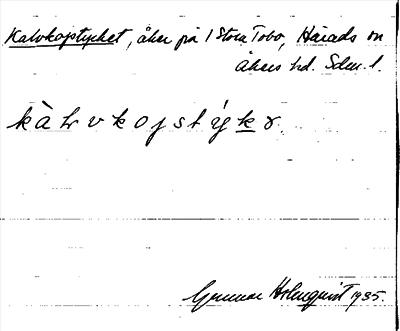 Kalvkopstycket, åker på 1 Stora Tobo, Härads sn
Åkers hd. Sdm. l.
k à l v k o p s t ý k ə.
Gunnar Holmquist 1935.